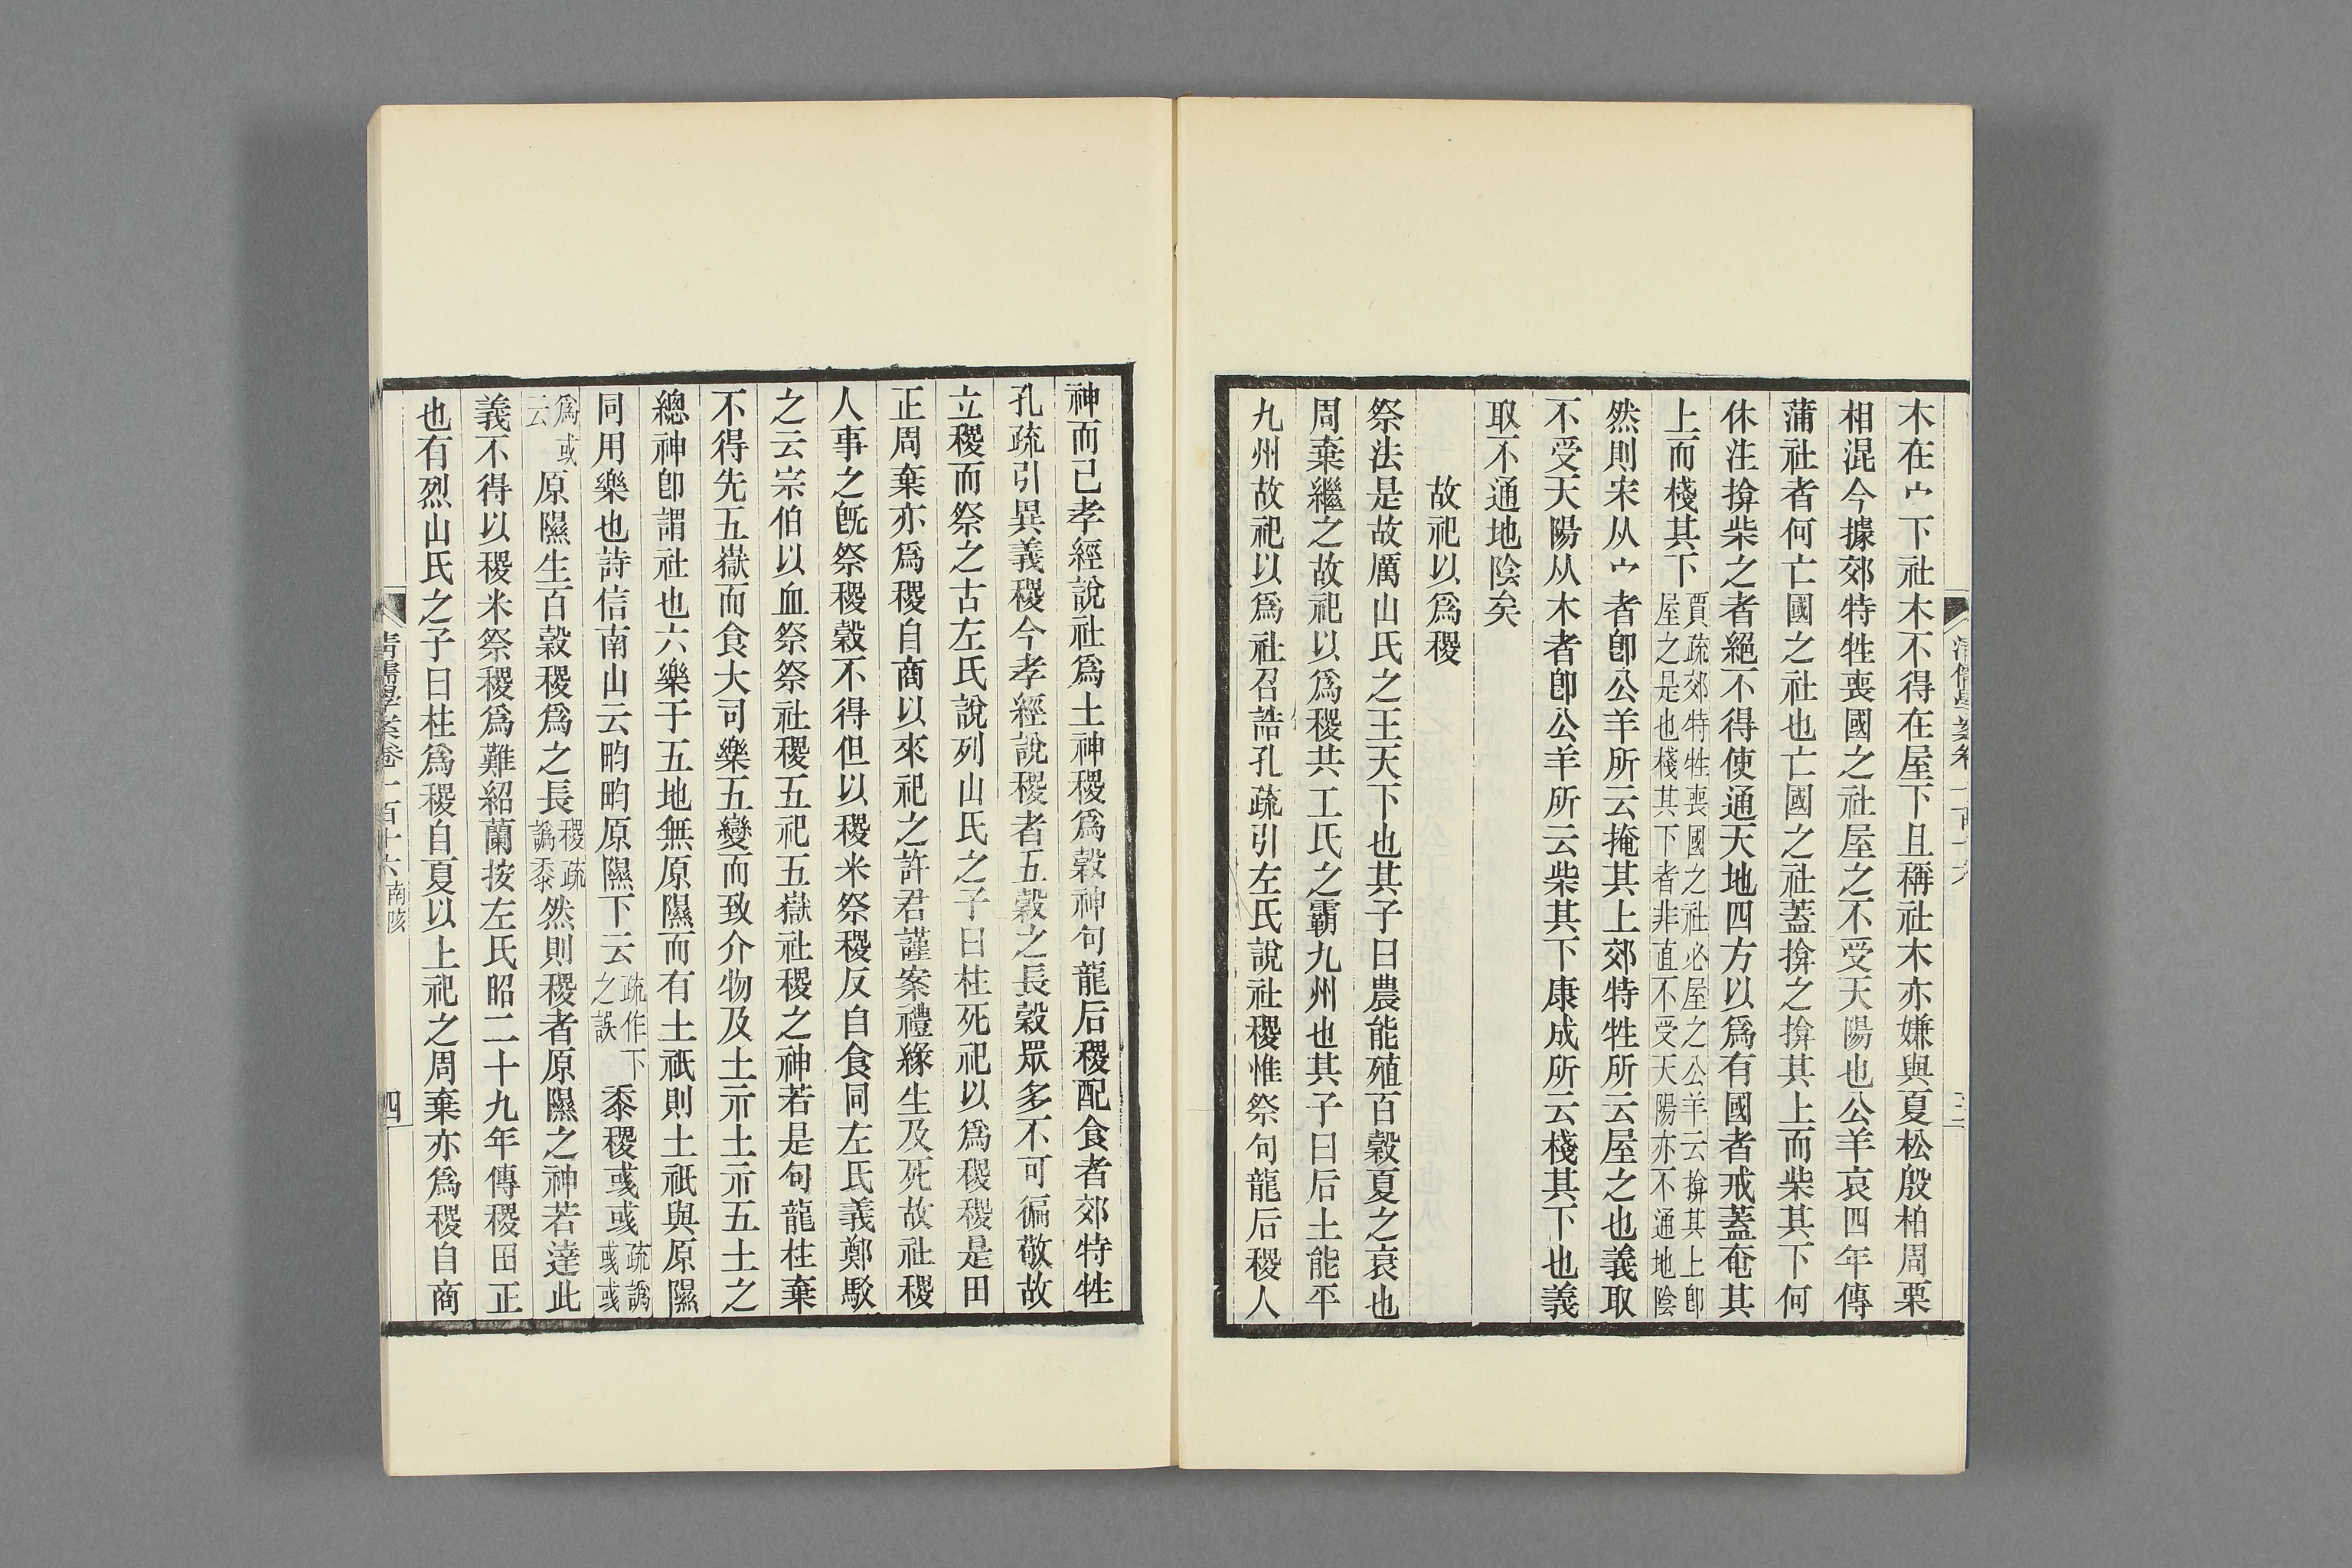 木在宀下社木不得在屋下且稱社木亦嫌與夏松殷柏周栗
相混今據郊特牲喪國之社屋之不受天陽也公羊哀四年傳
蒲社者何亡國之社也亡國之社蓋揜之揜其上而柴其下何
休注揜柴之者絕不得使通天地四方以爲有國者戒蓋奄其
上而棧其下賈疏郊特牲喪國之社必屋之公羊云揜其上卽屋之是也棧其下者非直不受天陽亦不通地陰
然則宋从宀者卽公羊所云掩其上郊特牲所云屋之也義取
不受天陽从木者卽公羊所云柴其下康成所云棧其下也義
取不通地陰矣
故祀以爲稷
祭法是故厲山氏之王天下也其子曰農能殖百穀夏之衰也
周棄繼之故祀以爲稷共工氏之霸九州也其子曰后土能平
九州故祀以爲社召誥孔疏引左氏說社稷惟祭句龍后稷人
神而已孝經說社爲土神稷爲穀神句龍后稷配食者郊特牲
孔疏引異義稷今孝經說稷者五穀之長穀眾多不可徧敬故
立稷而祭之古左氏說列山氏之子曰柱死祀以爲稷稷是田
正周棄亦爲稷自商以來祀之許君謹案禮緣生及死故社稷
人事之旣祭稷穀不得但以稷米祭稷反自食同左氏義鄭駁
之云宗伯以血祭祭社稷五祀五嶽社稷之神若是句龍柱棄
不得先五嶽而食大司樂五變而致介物及土示土示五土之
總神卽謂社也六樂于五地無原隰而有土祇則土祇與原隰
同用樂也詩信南山云畇畇原隰下云疏作下之誤黍稷彧彧疏譌或或
爲或云原隰生百穀稷爲之長稷疏譌黍然則稷者原隰之神若達此
義不得以稷米祭稷爲難紹蘭按左氏昭二十九年傳稷田正
也有烈山氏之子曰柱爲稷自夏以上祀之周棄亦爲稷自商
清儒學案卷一百十六 南陔
四